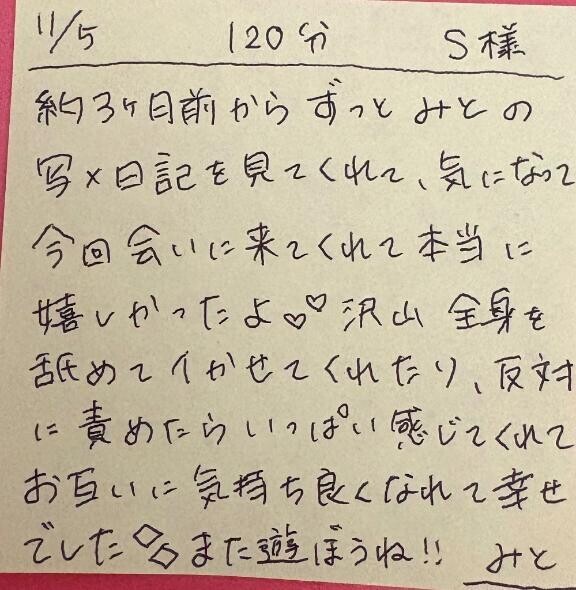 11/5 120分 S様
約3ヶ月前からずっとみとの
写メ日記を見てくれて、気になって
今回会いに来てくれて本当に
嬉しかったよ♡♡沢山全身を
舐めてイかせてくれたり、反対
に責めたらいっぱい感じてくれて
お互いに気持ち良くなれて幸せ
でした◇◇また遊ぼうね!! みと